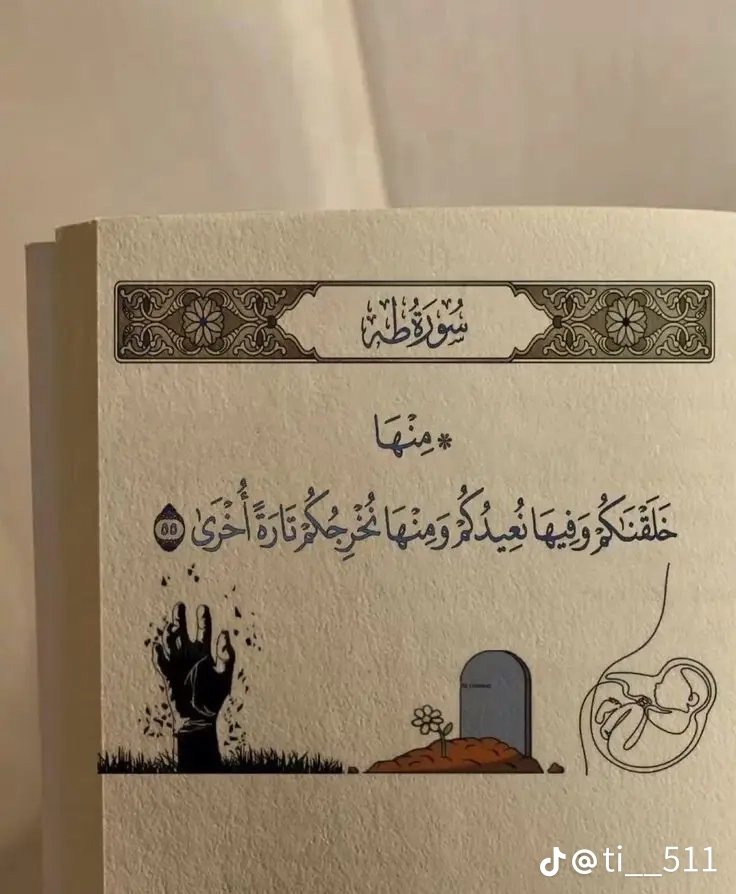 سُورَةُ طه
* مِنْهَا
خَلَقْنَٰكُمْ وَفِيهَا نُعِيدُكُمْ وَمِنْهَا نُخْرِجُكُمْ تَارَةً أُخْرَىٰ ٥٥
@ti__511